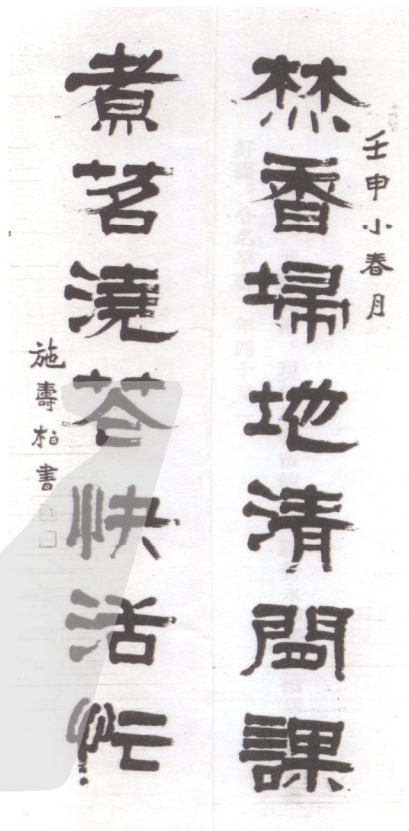 壬申小春月
焚香埽地清閒課
煮茗澆花快活忙
施壽柏書